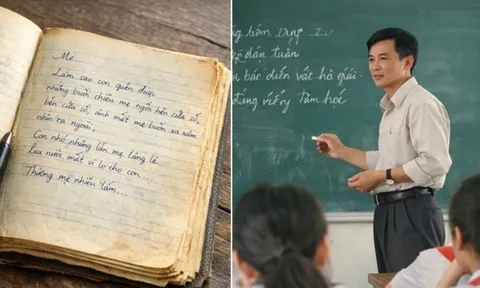 Mẹ...
Làm sao con quên được
những buổi chiều mẹ ngồi bên cửa sổ,
bên cửa sổ, ánh mắt mẹ buồn xa xăm
nhìn ra ngoài,
Con nhớ những lần mẹ lặng lẽ
lau nước mắt vì lo cho con...,
Thương mẹ nhiều lắm...
dán tuần
bác diễn vát hà giải
đung viếng tàm hoć